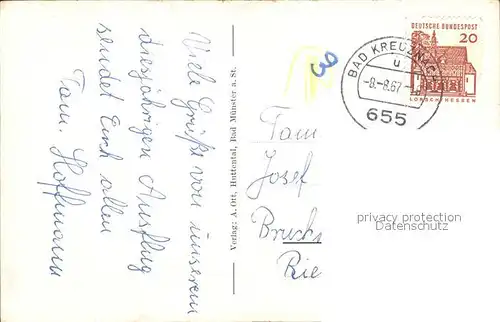 Viele Grüße von unserem
diesjährigen Ausflug
sendet Euch allen
Fam. Hoffmann
Verlag: A. Ott, Huttental, Bad Münster a. St.
3
DEUTSCHE BUNDESPOST
20
LORSCH/HESSEN
BAD KREUZNACH
-8.-8.67-
655
Fam
Josef
Bruchs
Rie
privacy protection
Datenschutz